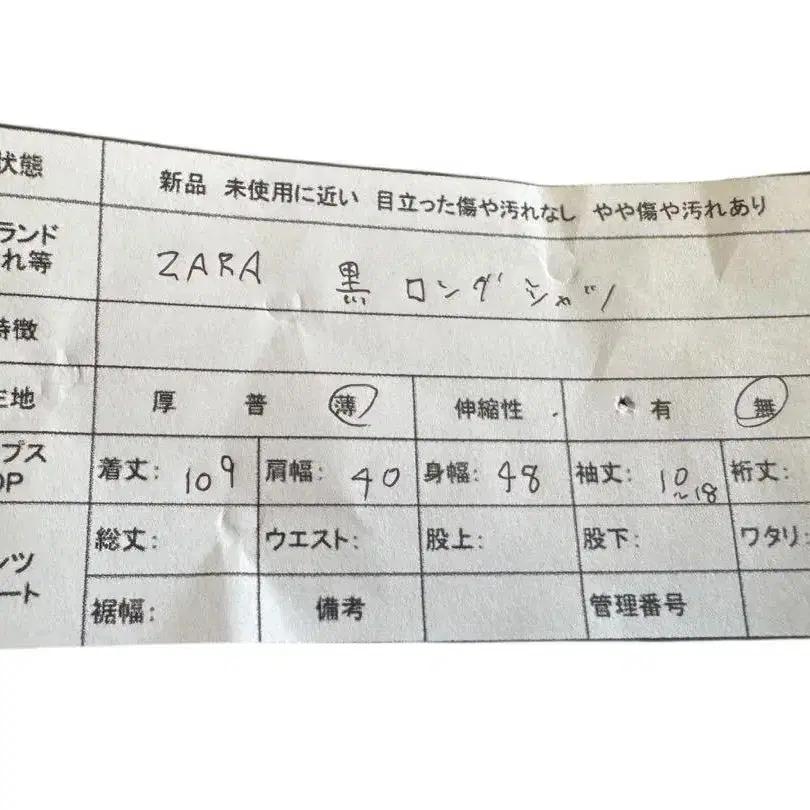 状態 新品 未使用に近い 目立った傷や汚れなし やや傷や汚れあり
ランド
れ等 ZARA 黒 ロングシャツ
特徴
生地 厚 普 薄 伸縮性 有 無
プス
OP 着丈: 109 肩幅: 40 身幅: 48 袖丈: 10~18 裄丈:
総丈: ウエスト: 股上: 股下: ワタリ:
ンツ
ート
裾幅: 備考 管理番号